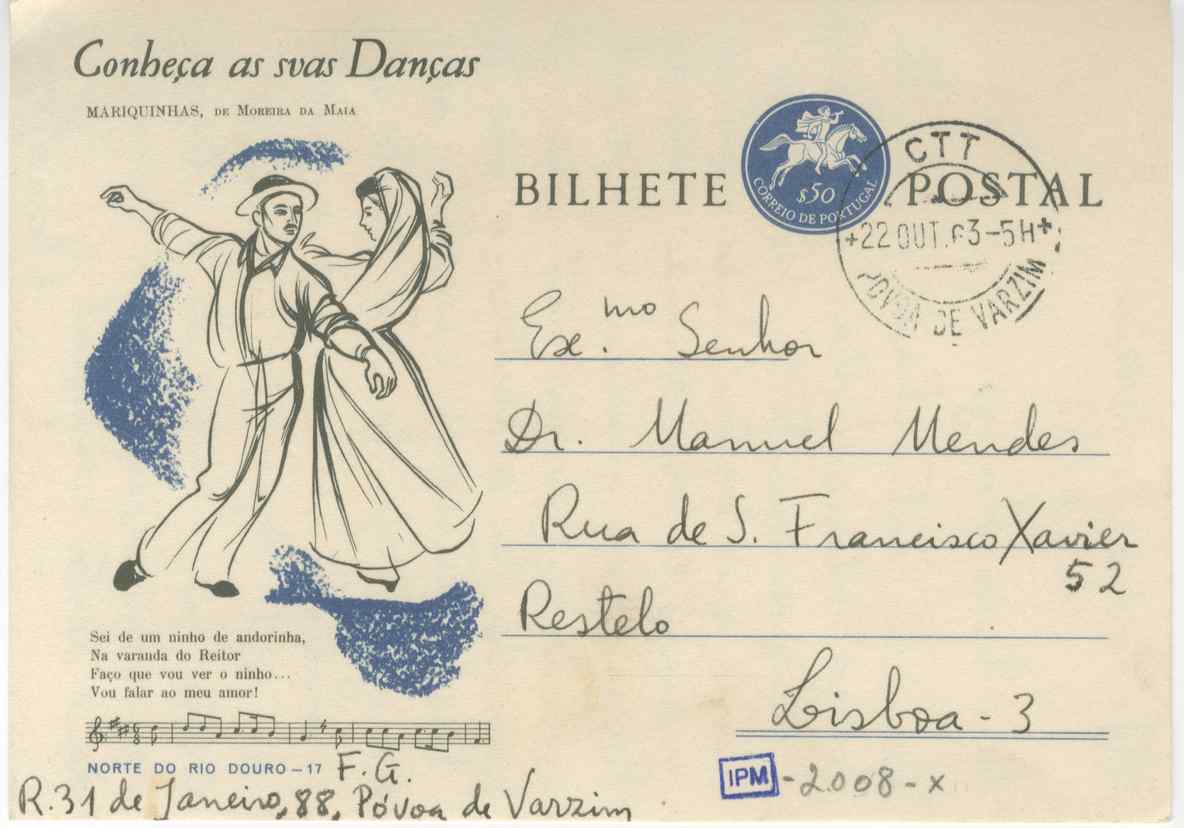 Conheça as suas Danças
MARIQUINHAS, DE MOREIRA DA MAIA
BILHETE POSTAL
$50
CORREIO DE PORTUGAL
CTT
+22 OUT.63-5H+
POVOA DE VARZIM
Ex.mo Senhor
Dr. Manuel Mendes
Rua de S. Francisco Xavier
52
Restelo
Lisboa - 3
Sei de um ninho de andorinha,
Na varanda do Reitor
Faço que vou ver o ninho...
Vou falar ao meu amor!
NORTE DO RIO DOURO – 17
F. G.
R. 31 de Janeiro, 88, Póvoa de Varzim
IPM - 2008 - X